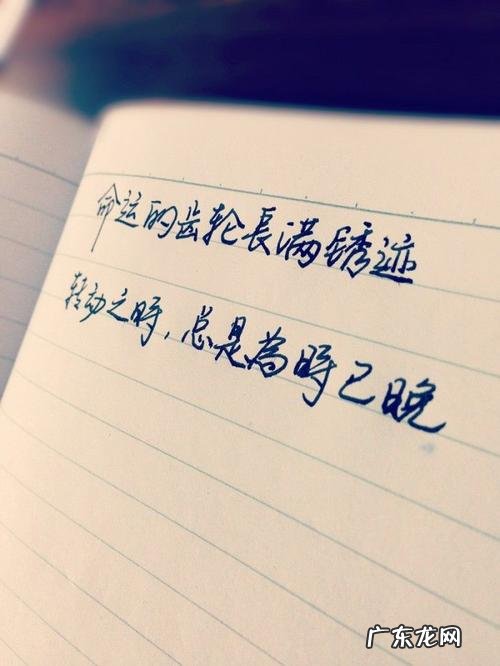 命运的齿轮長满锈迹
转动之時，总是為時已晚
广东龙网